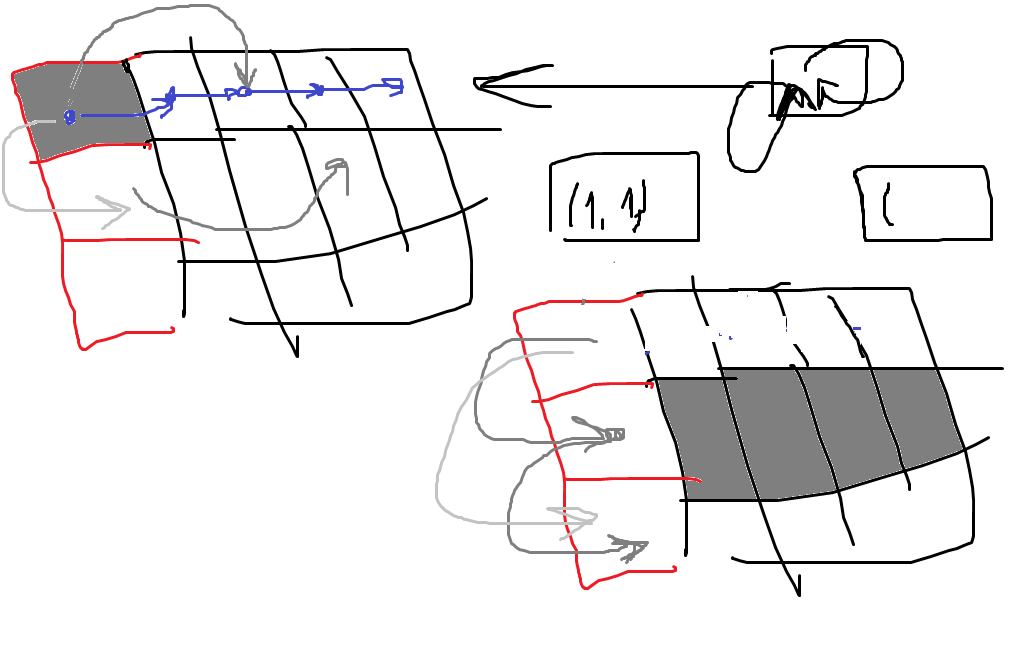 (1, 1)
(